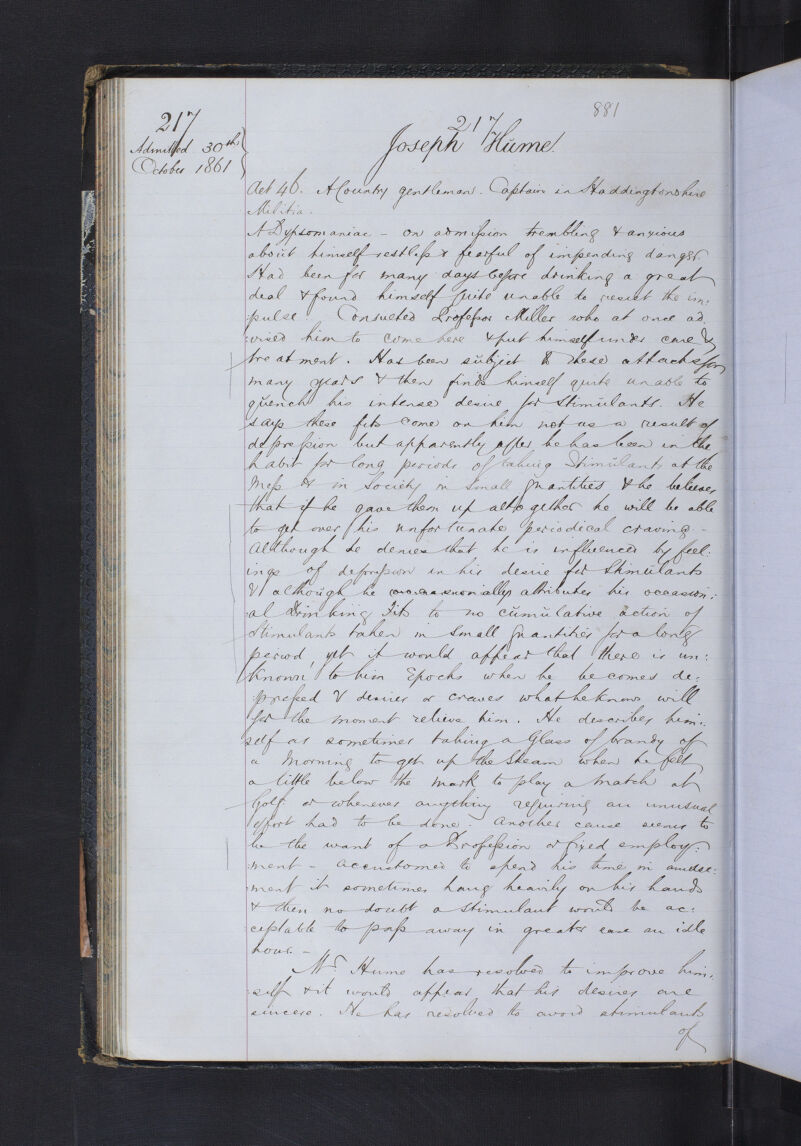 881
217
Admitted 30th
October 1861
217
Joseph Hume.
Aet 46. A Country gentleman. Captain in Haddingtonshire
Militia.
A Dypsomaniac - on admission trembling & anxious
about himself restless & fearful of impending danger.
Had been for many days before drinking a great
deal & found himself quite unable to resist the im:
:pulse. Consulted Professor Miller who at once ad
:vised him to come here & put himself under care &
treatment. Has been subject to these attacks for
many years & then finds himself quite unable to
quench his intense desire for Stimulants. He
says these fits come on him not as a result of
depression but apparently after he has been in the
habit for long periods of taking Stimulants at the
Mess & in Society in small quantities & he believes
that if he gave them up altogether he will be able
to get over his unfortunate periodical craving -
Although he denies that he is influenced by feel:
ings of depression in his desire for Stimulants
& although he occasionally attributes his occasion:
al drinking fits to no cumulative action of
Stimulants taken in small quantities for a long
period, yet it would appear that there is un:
:known to him Epochs when he becomes de:
:pressed & desires or craves what he knows will
for the moment relieve him. He describes him:
:self as sometimes taking a Glass of brandy of
a morning to get up the Steam when he felt
a little below the mark to play a match at
Golf or whenever anything requiring an unusual
effort had to be done - Another cause seems to
be the want of a Profession or fixed employ:
:ment - Accustomed to spend his time in amuse:
:ment it sometimes hang heavily on his hands
& then no doubt a stimulant would be ac:
:ceptable to pass away in greater ease an idle
hour. -
Mr Hume has resolved to improve him:
:self & it would appear that his desires are
sincere. He has resolved to avoid stimulants
of